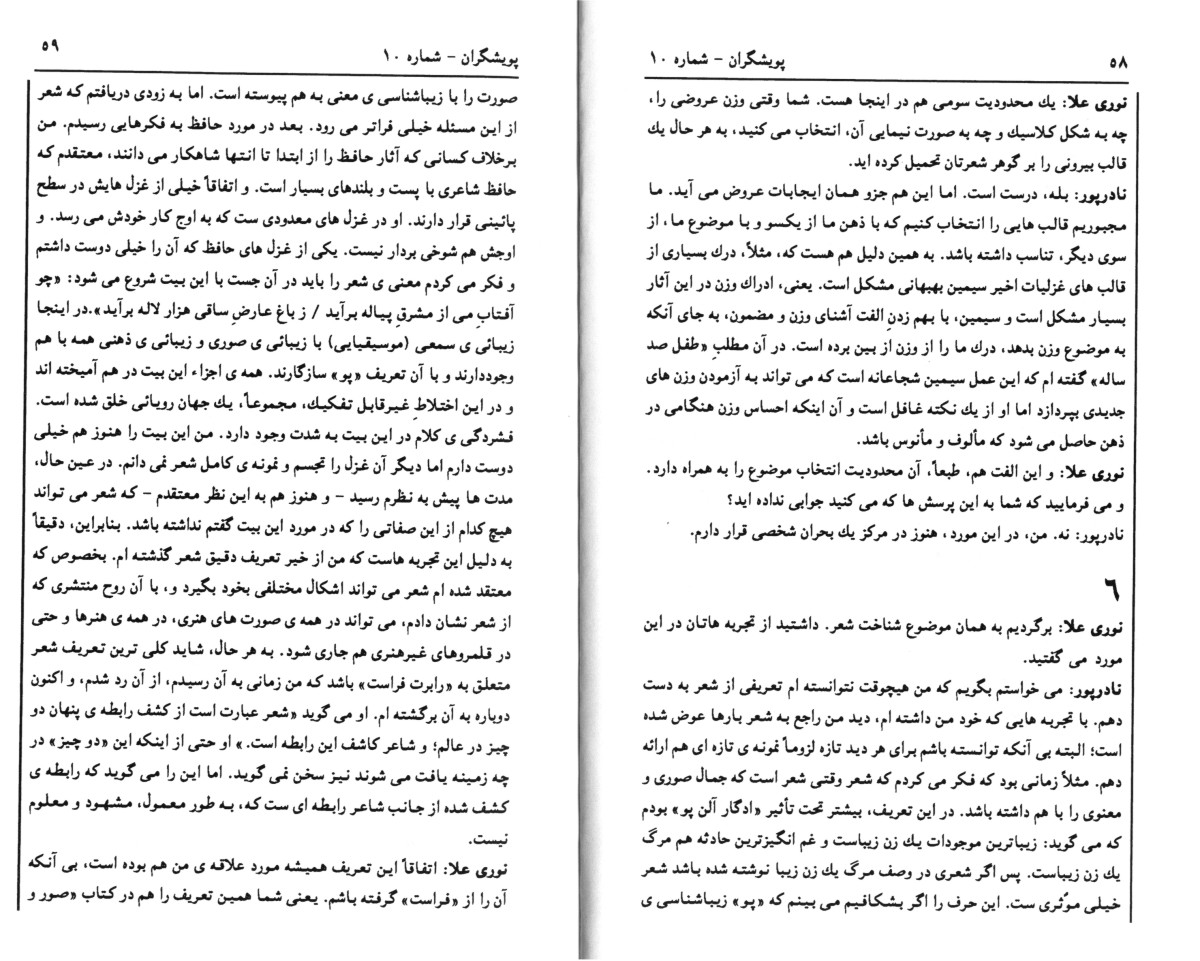 ۵۸
پویشگران – شماره ۱۰
نوری علا: یك محدودیت سومی هم در اینجا هست. شما وقتی وزن عروضی را،
چه به شکل کلاسیك و چه به صورت نیمایی آن، انتخاب می کنید، به هر حال یك
قالب بیرونی را بر گوهر شعرتان تحمیل کرده اید.
نادرپور: بله، درست است. اما این هم جزو همان ایجابات عروض می آید. ما
مجبوریم قالب هایی را انتخاب کنیم که با ذهن ما از یکسو و با موضوع ما، از
سوی دیگر، تناسب داشته باشد. به همین دلیل هم هست که، مثلاً، درك بسیاری از
قالب های غزلیات اخیر سیمین بهبهانی مشکل است. یعنی، ادراك وزن در این آثار
بسیار مشکل است و سیمین، با بهم زدنِ الفت آشنای وزن و مضمون، به جای آنکه
به موضوع وزن بدهد، درك ما را از وزن از بین برده است. در آن مطلبِ «طفل صد
ساله» گفته ام که این عمل سیمین شجاعانه است که می تواند به آزمودن وزن های
جدیدی بپردازد اما او از یك نکته غافل است و آن اینکه احساس وزن هنگامی در
ذهن حاصل می شود که مألوف و مأنوس باشد.
نوری علا: و این الفت هم، طبعاً، آن محدودیت انتخاب موضوع را به همراه دارد.
و می فرمایید که شما به این پرسش ها که می کنید جوابی نداده اید؟
نادرپور: نه. من، در این مورد، هنوز در مرکز یك بحران شخصی قرار دارم.
٦
نوری علا: برگردیم به همان موضوع شناخت شعر. داشتید از تجربه هاتان در این
مورد می گفتید.
نادرپور: می خواستم بگویم که من هیچوقت نتوانسته ام تعریفی از شعر به دست
دهم. با تجربه هایی که خود من داشته ام، دید من راجع به شعر بارها عوض شده
است؛ البته بی آنکه توانسته باشم برای هر دید تازه لزوماً نمونه ی تازه ای هم ارائه
دهم. مثلاً زمانی بود که فکر می کردم که شعر وقتی شعر است که جمال صوری و
معنوی را با هم داشته باشد. در این تعریف، بیشتر تحت تأثیر «ادگار آلن پو» بودم
که می گوید: زیباترین موجودات یك زن زیباست و غم انگیزترین حادثه هم مرگ
یك زن زیباست. پس اگر شعری در وصف مرگ یك زن زیبا نوشته شده باشد شعر
خیلی مؤثری ست. این حرف را اگر بشکافیم می بینم که «پو» زیباشناسی ی
پویشگران – شماره ۱۰
۵۹
صورت را با زیباشناسی ی معنی به هم پیوسته است. اما به زودی دریافتم که شعر
از این مسئله خیلی فراتر می رود. بعد در مورد حافظ به فکرهایی رسیدم. من
برخلاف کسانی که آثار حافظ را از ابتدا تا انتها شاهکار می دانند، معتقدم که
حافظ شاعری با پست و بلندهای بسیار است. و اتفاقاً خیلی از غزل هایش در سطح
پائینی قرار دارند. او در غزل های معدودی ست که به اوج کار خودش می رسد. و
اوجش هم شوخی بردار نیست. یکی از غزل های حافظ که آن را خیلی دوست داشتم
و فکر می کردم معنی ی شعر را باید در آن جست با این بیت شروع می شود: «چو
آفتابِ می از مشرقِ پیاله برآید / ز باغ عارضِ ساقی هزار لاله برآید».در اینجا
زیبائی ی سمعی (موسیقیایی) با زیبائی ی صوری و زیبائی ی ذهنی همه با هم
وجوددارند و با آن تعریف «پو» سازگارند. همه ی اجزاء این بیت در هم آمیخته اند
و در این اختلاطِ غیرقابل تفکیك، مجموعاً، یك جهان رویائی خلق شده است.
فشردگی ی کلام در این بیت به شدت وجود دارد. من این بیت را هنوز هم خیلی
دوست دارم اما دیگر آن غزل را تجسم و نمونه ی کامل شعر نمی دانم. در عین حال،
مدت ها پیش به نظرم رسید – و هنوز هم به این نظر معتقدم – که شعر می تواند
هیچ کدام از این صفاتی را که در مورد این بیت گفتم نداشته باشد. بنابراین، دقیقاً
به دلیل این تجربه هاست که من از خیر تعریف دقیق شعر گذشته ام. بخصوص که
معتقد شده ام شعر می تواند اشکال مختلفی بخود بگیرد و، با آن روح منتشری که
از شعر نشان دادم، می تواند در همه ی صورت های هنری، در همه ی هنرها و حتی
در قلمروهای غیرهنری هم جاری شود. به هر حال، شاید کلی ترین تعریف شعر
متعلق به «رابرت فراست» باشد که من زمانی به آن رسیدم، از آن رد شدم، و اکنون
دوباره به آن برگشته ام. او می گوید «شعر عبارت است از کشف رابطه ی پنهان دو
چیز در عالم؛ و شاعر کاشف این رابطه است.» او حتی از اینکه این «دو چیز» در
چه زمینه یافت می شوند نیز سخن نمی گوید. اما این را می گوید که رابطه ی
کشف شده از جانب شاعر رابطه ای ست که، به طور معمول، مشهود و معلوم
نیست.
نوری علا: اتفاقاً این تعریف همیشه مورد علاقه ی من هم بوده است، بی آنکه
آن را از «فراست» گرفته باشم. یعنی شما همین تعریف را هم در کتاب «صور و